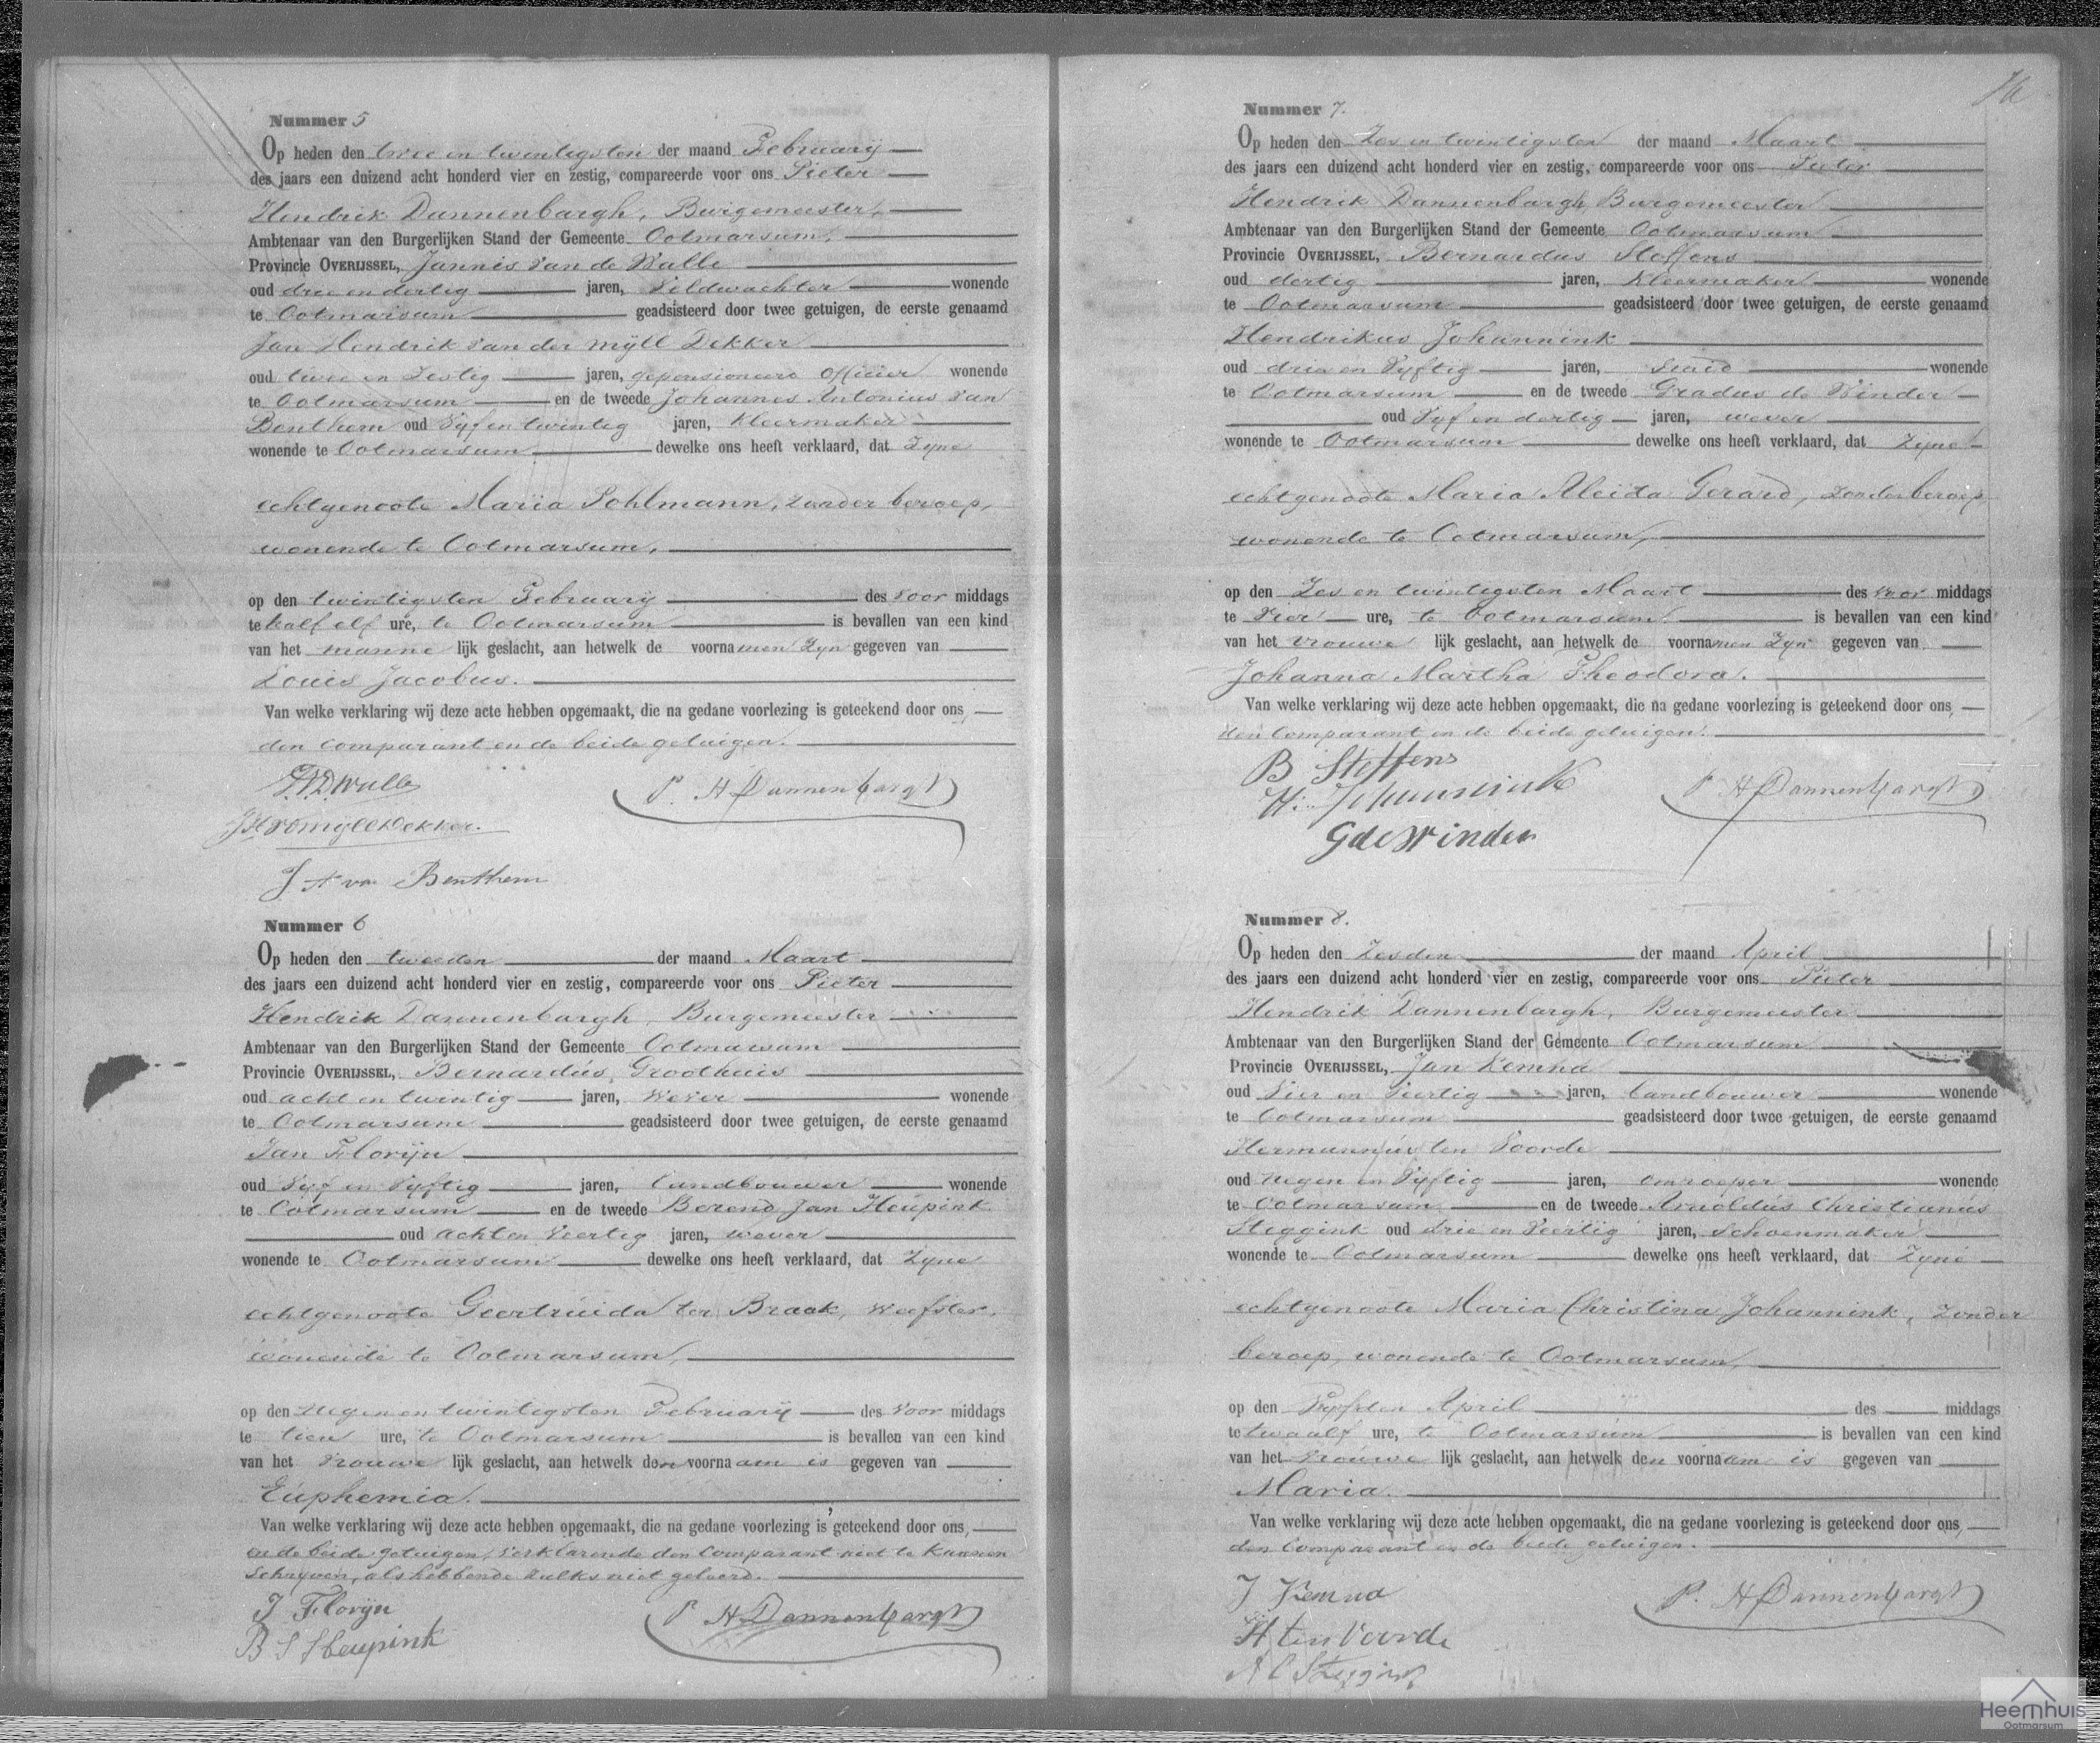 Nummer 5
Op heden den twee en twintigsten der maand Februarij
des jaars een duizend acht honderd vier en zestig, compareerde voor ons Pieter
Hendrik Dannenbargh, Burgemeester,
Ambtenaar van den Burgerlijken Stand der Gemeente Ootmarsum,
Provincie OVERIJSSEL, Jannis van de Walle
oud drie en dertig jaren, Veldwachter wonende
te Ootmarsum geadsisteerd door twee getuigen, de eerste genaamd
Jan Hendrik van der Mijll Dekker
oud twee en Zestig jaren, gepensioneerd Officier wonende
te Ootmarsum en de tweede Johannes Antonius van
Benthem oud Vyf en twintig jaren, Kleermaker
wonende te Ootmarsum dewelke ons heeft verklaard, dat Zyne
echtgenoote Maria Pohlmann, zonder beroep,
wonende te Ootmarsum,
op den twintigsten Februarij des Voor middags
te half elf ure, te Ootmarsum is bevallen van een kind
van het manne lijk geslacht, aan hetwelk de voornamen Zyn gegeven van
Louis Jacobus.
Van welke verklaring wij deze acte hebben opgemaakt, die na gedane voorlezing is geteekend door ons,
den comparant en de beide getuigen.
P. H Dannenbargh
J H vd Myll Dekker.
J A van Benthem
Nummer 6
Op heden den tweeden der maand Maart
des jaars een duizend acht honderd vier en zestig, compareerde voor ons Pieter
Hendrik Dannenbargh, Burgemeester
Ambtenaar van den Burgerlijken Stand der Gemeente Ootmarsum
Provincie OVERIJSSEL, Bernardus Groothuis
oud acht en twintig jaren, Wever wonende
te Ootmarsum geadsisteerd door twee getuigen, de eerste genaamd
Jan Florijn
oud Vijf en Vyftig jaren, Landbouwer wonende
te Ootmarsum en de tweede Berend Jan Heupink
oud acht en Veertig jaren, wever
wonende te Ootmarsum dewelke ons heeft verklaard, dat Zyne
echtgenoote Geertruida ter Braak, Weefster,
wonende te Ootmarsum,
op den Negen en twintigsten Februarij des Voor middags
te tien ure, te Ootmarsum is bevallen van een kind
van het Vrouwe lijk geslacht, aan hetwelk den voornaam is gegeven van
Euphemia.
Van welke verklaring wij deze acte hebben opgemaakt, die na gedane voorlezing is geteekend door ons,
en de beide getuigen, verklarende den Comparant niet te kunnen
schryven, als hebbende zulks niet geleerd.
J Florijn
P H Dannenbargh
B J Heupink
Nummer 7.
Op heden den Zes en twintigsten der maand Maart
des jaars een duizend acht honderd vier en zestig, compareerde voor ons Pieter
Hendrik Dannenbargh, Burgemeester
Ambtenaar van den Burgerlijken Stand der Gemeente Ootmarsum
Provincie OVERIJSSEL, Bernardus Steffens
oud dertig jaren, Kleermaker wonende
te Ootmarsum geadsisteerd door twee getuigen, de eerste genaamd
Hendrikus Johannink
oud drie en Vyftig jaren, Smid wonende
te Ootmarsum en de tweede Gradus de Winder
oud Vyf en dertig jaren, wever
wonende te Ootmarsum dewelke ons heeft verklaard, dat Zyne
echtgenoote Maria Aleida Gerard, zonder beroep,
wonende te Ootmarsum,
op den Zes en twintigsten Maart des Voor middags
te Vier ure, te Ootmarsum is bevallen van een kind
van het vrouwe lijk geslacht, aan hetwelk de voornamen Zyn gegeven van
Johanna Martha Theodora.
Van welke verklaring wij deze acte hebben opgemaakt, die na gedane voorlezing is geteekend door ons,
den Comparant en de beide getuigen.
B Steffens
H. Johannink
P H Dannenbargh
G de Winder
Nummer 8.
Op heden den Zesden der maand April
des jaars een duizend acht honderd vier en zestig, compareerde voor ons Pieter
Hendrik Dannenbargh, Burgemeester
Ambtenaar van den Burgerlijken Stand der Gemeente Ootmarsum
Provincie OVERIJSSEL, Jan Kemna
oud Vier en Veertig jaren, Landbouwer wonende
te Ootmarsum geadsisteerd door twee getuigen, de eerste genaamd
Hermannus ten Voorde
oud Negen en Vyftig jaren, omroeper wonende
te Ootmarsum en de tweede Arnoldus Christianus
Steggink oud drie en Veertig jaren, Schoenmaker
wonende te Ootmarsum dewelke ons heeft verklaard, dat Zyne
echtgenoote Maria Christina Johannink, Zonder
beroep, wonende te Ootmarsum,
op den Vyfden April des middags
te twaalf ure, te Ootmarsum is bevallen van een kind
van het Vrouwe lijk geslacht, aan hetwelk den voornaam is gegeven van
Maria.
Van welke verklaring wij deze acte hebben opgemaakt, die na gedane voorlezing is geteekend door ons,
den Comparant en de beide getuigen.
J Kemna
P. H Dannenbargh
H ten Voorde
A C Steggink
Heemhuis
Ootmarsum